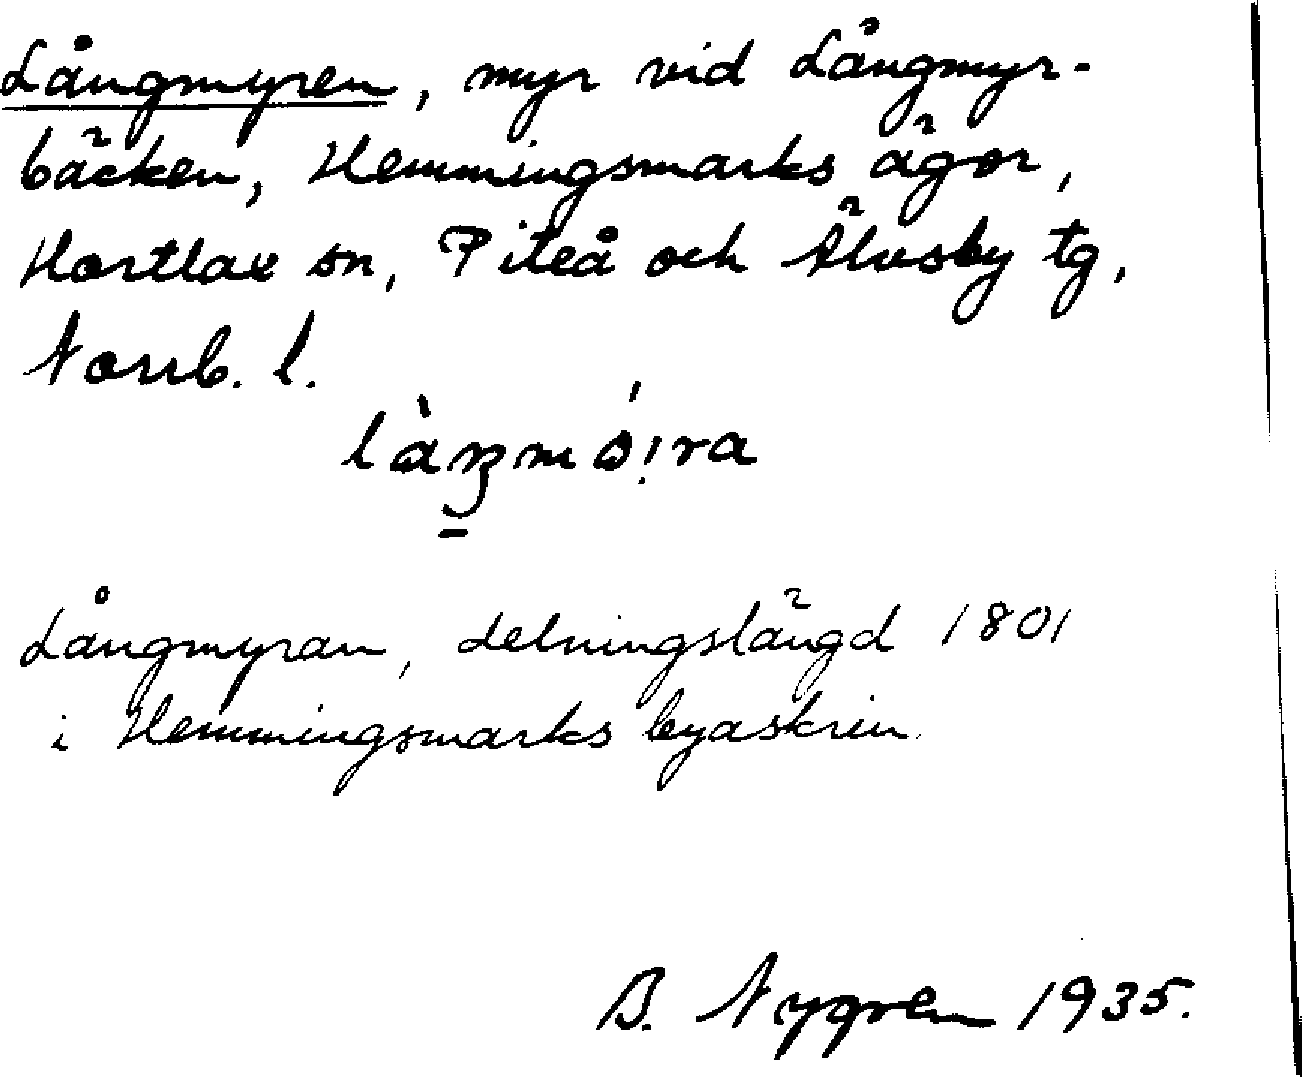 Långmyren, myr vid Långmyr-
bäcken, Hemmingsmarks ägor,
Hortlax sn, Piteå och Älvsby tg,
Norrb. l.
Långmyran, delningslängd 1801
i Hemmingsmarks byaskrin.
B. Nygren 1935.